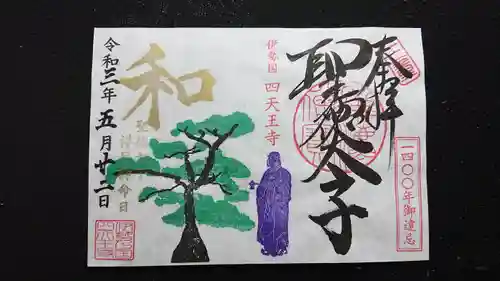 奉拝
聖徳太子
一四〇〇年御遠忌
伊勢国 四天王寺
和
令和三年五月廿二日